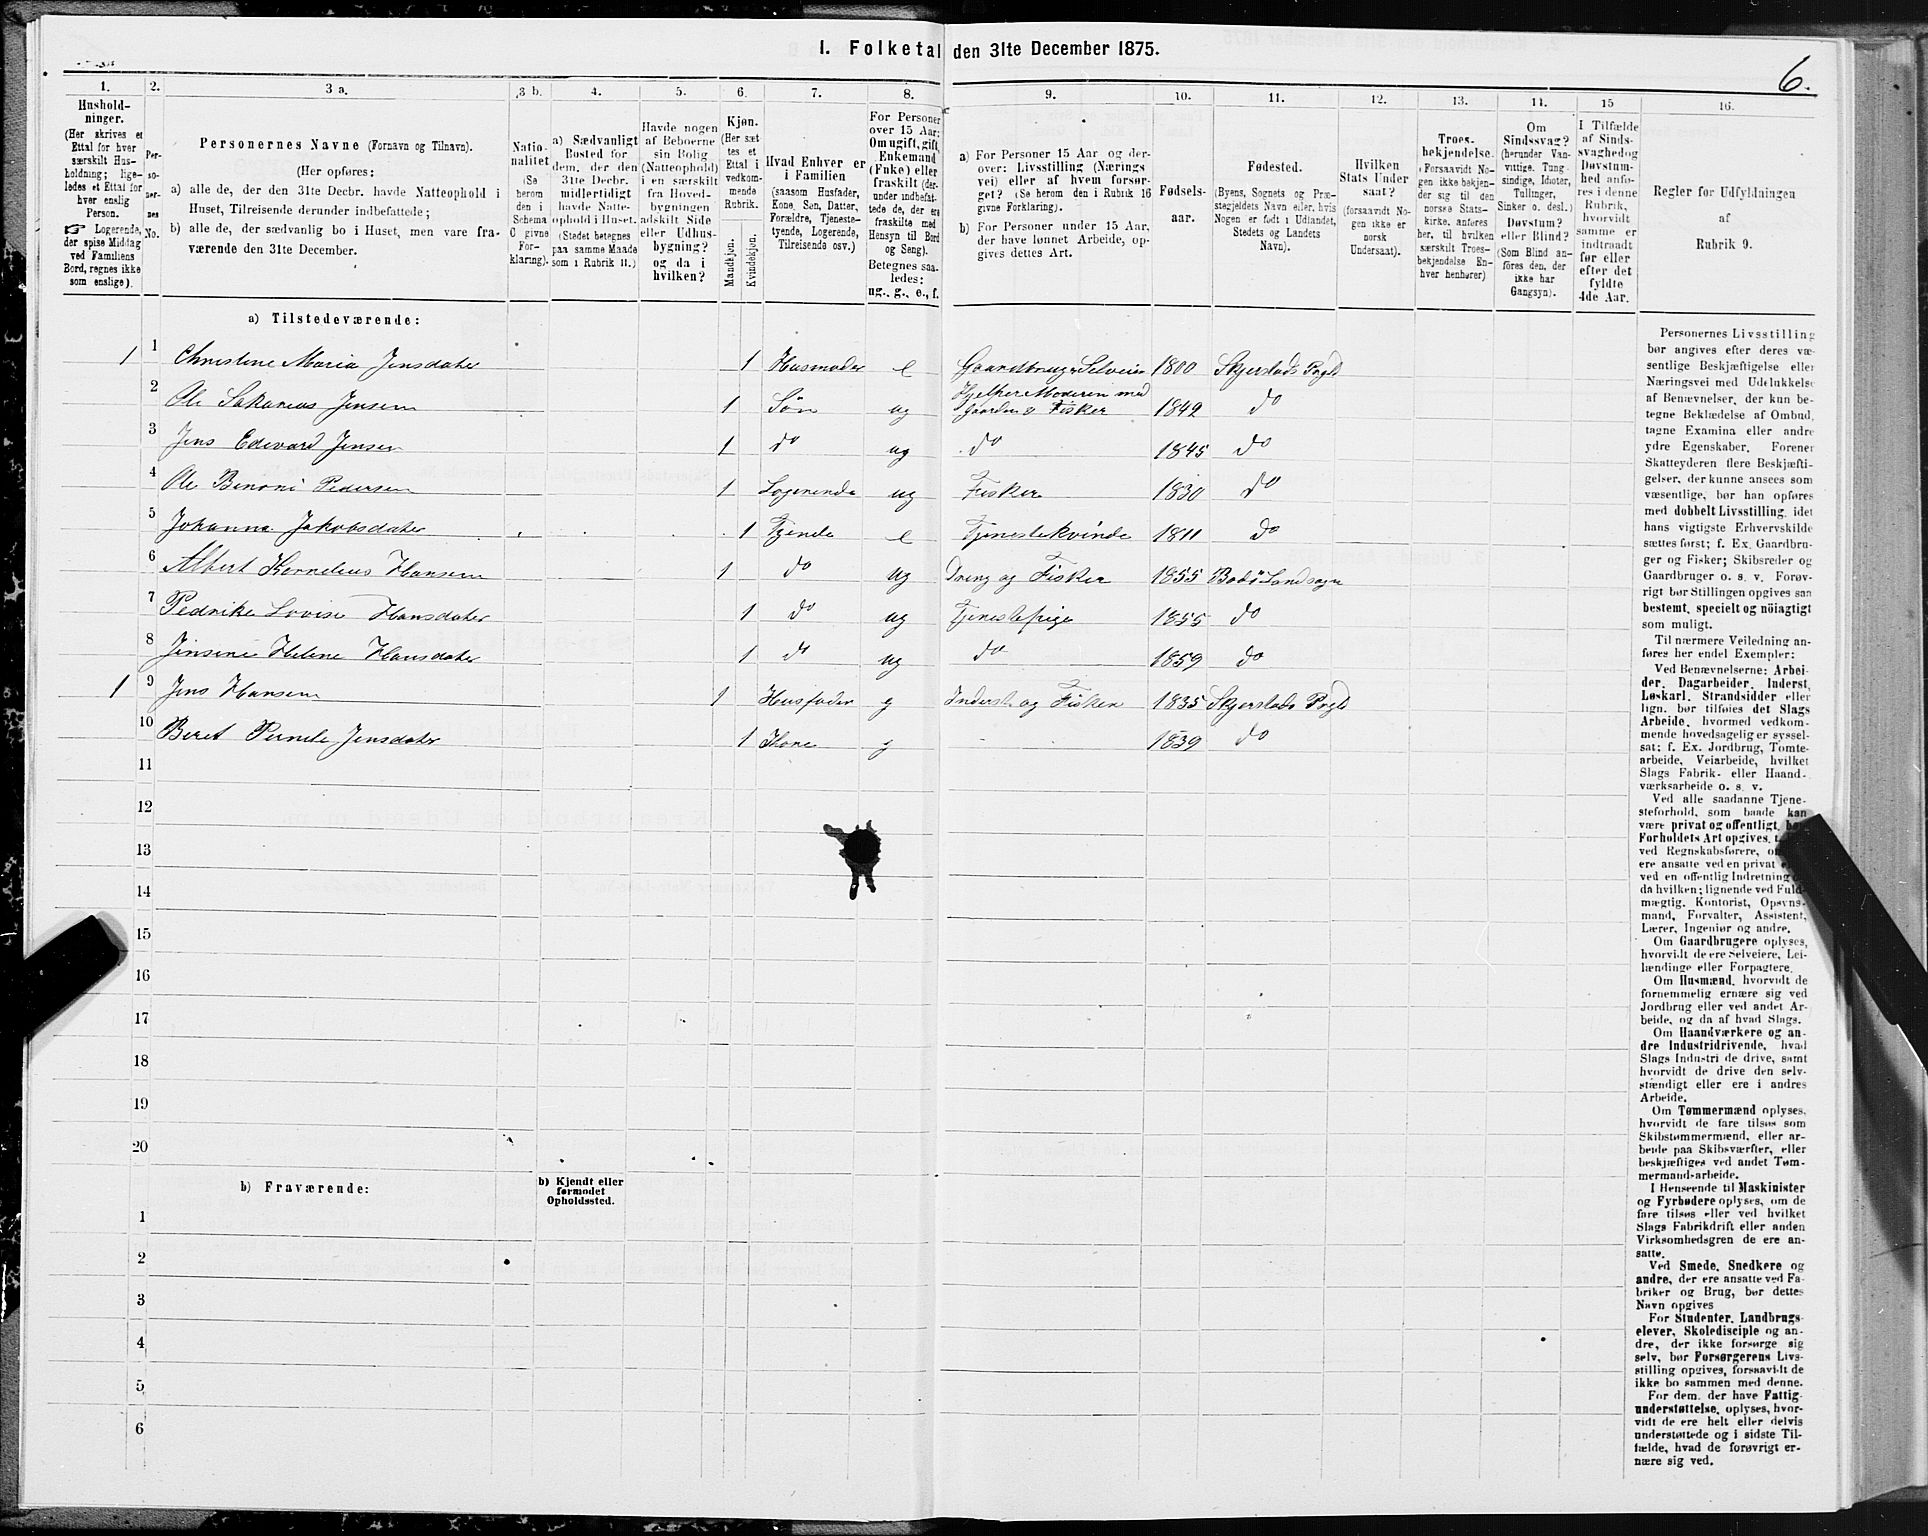 I. Folketal den 31te December 1875.
6.
1.
Hushold-
ninger.
(Her skrives et
Ettal for hver
særskilt Hus-
holdning; lige-
ledes et Ettal for
hver enslig
Person.
☞ Logerende,
der spise Middag
ved Familiens
Bord, regnes ikke
som enslige).
2.
Per-
so-
ner-
nes
No.
3 a.
Personernes Navne (Fornavn og Tilnavn).
(Her opføres:
a) alle de, der den 31te Decbr. havde Natteophold i
Huset, Tilreisende derunder indbefattede;
b) alle de, der sædvanlig bo i Huset, men vare fra-
værende den 31te December.
3 b.
Natio-
nalitet
(Se
herom
den i
Schema
C givne
For-
klaring).
4.
a) Sædvanligt
Bosted for
dem, der den
31te Decbr.
midlertidigt
havde Natte-
ophold i Huset.
(Stedet betegnes
paa samme Maade
som i Rubrik 11.)
5.
Havde nogen
af Beboerne
sin Bolig
(Natteophold)
i en særskilt
fra Hoved-
bygningen
adskilt Side
eller Udhus-
bygning?
og da i
hvilken?
6.
Kjøn.
(Her sæt
tes et
Ettal i
vedkom-
mende
Rubrik.
Mandkjøn.
Kvindekjøn.
7.
Hvad Enhver er
i Familien
(saasom Husfader,
Kone, Søn, Datter,
Forældre, Tjeneste-
tyende, Logerende,
Tilreisende osv.)
8.
For Personer
over 15 Aar:
Om ugift, gift,
Enkemand
(Enke) eller
fraskilt (der-
under indbefat-
tede de, der ere
fraskilte med
Hensyn til Bord
og Seng).
Betegnes saa-
ledes:
ug., g., e., f.
9.
a) For Personer 15 Aar og der-
over: Livsstilling (Nærings
vei) eller af hvem forsør-
get? (Se herom den i Rubrik 16
givne Forklaring).
b) For Personer under 15 Aar,
der have lønnet Arbeide, op-
gives dettes Art.
10.
Fødsels-
aar.
11.
Fødested.
(Byens, Sognets og Præ-
stegjeldets Navn eller, hvis
Nogen er født i Udlandet,
Stedets og Landets
Navn).
12.
Hvilken
Stats Under
saat?
(forsaavidt No-
gen ikke er
norsk
Undersaat).
13.
Troes-
bekjendelse.
(Forsaavidt No-
gen ikke bekjen-
der sig til den
norske Stats-
kirke, anføres
her, til hvilken
særskilt Troes-
bekjendelse En-
hver henhører)
14.
Om
Sindssvag?
(herunder Van-
vittige, Tung-
sindige, Idioter,
Tullinger,
Sinker o. desl.)
Døvstum?
eller Blind?
(Som Blind an-
føres den, der
ikke har
Gangsyn).
15
I Tilfælde
af Sinds-
svaghed og
Døvstum-
hed anfø-
res i denne
Rubrik,
hvorvidt
samme er
indtraadt
før eller
efter det
fyldte
4de Aar.
16.
Regler for Udfyldningen
af
Rubrik 9.
a) Tilstedeværende:
1 1 Christine Maria Jensdater 1 Husmoder e Gaardbruger Selveier 1800 Skjerstads Prgld
2 Ole Sakarias Jensen 1 Søn ug Hjelper Moderen med Gaarden & Fisker 1842 do
3 Jens Edevard Jensen 1 do ug do 1845 do
4 Ole Benoni Pedersen 1 Logerende ug Fisker 1830 do
5 Johanna Jakobsdater 1 Tjende e Tjenestekvinde 1811 do
6 Albert Kornelius Hansen 1 do ug Dreng og Fisker 1855 Bodø Landsogn
7 Pedrike Lovise Hansdater 1 do ug Tjenestepige 1855 do
8 Jensine Helene Hansdater 1 do ug do 1859 do
1 9 Jens Hansen 1 Husfader g Inderst og Fisker 1835 Skjerstads Prgld
10 Beret Pernele Jensdater 1 Kone g 1839 do
11
12
13
14
15
16
17
18
19
20
b) Fraværende:
b) Kjendt eller
formodet
Opholdssted.
1
2
3
4
5
6
Personernes Livsstilling
bør angives efter deres væ-
sentlige Beskjæftigelse eller
Næringsvei med Udelukkelse
af Benævnelser, der kun be-
tegne Beklædelse af Ombud,
tagne Examina eller andre
ydre Egenskaber. Forener
Skatteyderen flere Beskjæfti-
gelser, der kunne ansees som
væsentlige, bør han opføres
med dobbelt Livsstilling, idet
hans vigtigste Erhvervskilde
sættes først; f. Ex. Gaardbru-
ger og Fisker; Skibsreder og
Gaardbruger o. s. v. Forøv-
rigt bør Stillingen opgives saa
bestemt, specielt og nöiagtigt
som muligt.
Til nærmere Veiledning an-
føres her endel Exempler:
Ved Benævnelserne: Arbei-
der, Dagarbeider, Inderst,
Løskarl, Strandsidder eller
lign. bør tilføies det Slags
Arbeide, hvormed vedkom-
mende hovedsagelig er syssel-
sat; f. Ex. Jordbrug, Tomte-
arbeide, Veiarbeide, hvilket
Slags Fabrik- eller Haand-
værksarbeide o. s. v.
Ved alle saadanne Tjene-
steforhold, som baade kan
være privat og offentligt,
Forholdets Art opgives,
ved Regnskabsførere,
ere ansatte ved en privat
ved en offentlig Indretning
da hvilken; lignende ved Fuld-
mægtig, Kontorist, Opsyns-
mand, Forvalter, Assistent,
Lærer, Ingeniør og andre.
Om Gaardbrugere oplyses,
hvorvidt de ere Selveiere, Lei-
lændinge eller Forpagtere.
Om Husmænd, hvorvidt de
fornemmelig ernære sig ved
Jordbrug eller ved andet Ar-
beide, og da af hvad Slags.
Om Haandværkere og an-
dre Industridrivende, hvad
Slags Industri de drive, samt
hvorvidt de drive den selv-
stændigt eller ere i andres
Arbeide.
Om Tømmermænd oplyses,
hvorvidt de fare tilsøs som
Skibstømmermænd, eller ar-
beide paa Skibsværfter, eller
beskjæftiges ved andet Tøm-
mermand-arbeide.
I Henseende til Maskinister
og Fyrbødere oplyses, om de
fare tilsøs eller ved hvilket
Slags Fabrikdrift eller anden
Virksomhedsgren de ere an-
satte.
Ved Smede, Snedkere og
andre, der ere ansatte ved Fa-
briker og Brug, bør dettes
Navn opgives
For Studenter, Landbrugs-
elever, Skoledisciple og an-
dre, der ikke forsørge sig
selv, bør Forsørgerens Livs-
stilling opgives, forsaavidt de
ikke bo sammen med denne.
For dem, der have Fattig-
understøttelse, oplyses, hvor-
vidt de ere helt eller delvis
understøttede og i sidste Til-
fælde, hvad de forøvrigt er-
nære sig ved.